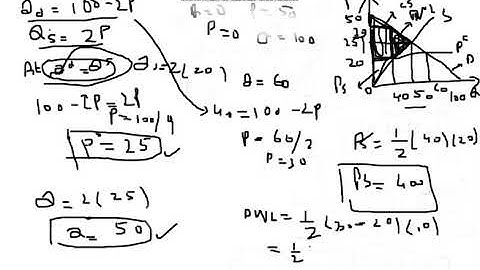 Qd = 100-2P
Qs = 2P
At Qd = Qs
100-2P=2P
P=100/4
P = 25
Q = 2(25)
Q = 50
P=0
P=50
Q=100
Qs=2(20)
Q=60
40=100-2P
P=60/2
P=30
P
50
30
25
20
0
40 50 60 100 Q
CS
DWL
S
Pc
D
Ps
PS=1/2(40)(20)
PS=400
DWL=1/2(30-20)(10)
=1/2